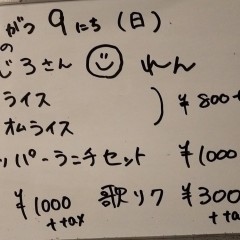 がつ 9にち (日)
の
じろさん れん
ライス
オムライス
) ¥800+
ッパーランチセット ¥1000
¥1000 歌リク ¥300
+tax +ta